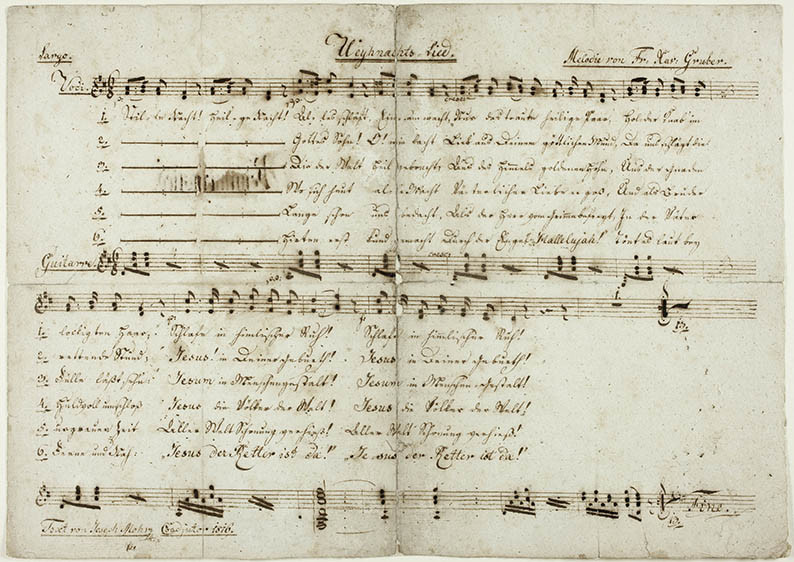 Weyhnachts-Lied.
Largo. Melodie von Fr. Xav. Gruber.
Voci.
cresc:
1. Stille Nacht! Heilige Nacht! Alles schläft. Einsam wacht, Nur das traute heilige Paar. Holder Knab im
2. Gottes Sohn! O! wie lacht Lieb' aus Deinem göttlichen Mund, Da uns schlägt die
3. Die der Welt Heil gebracht; Aus des Himmels goldenen Höhn, Aus der Gnaden
4. Wo sich heut alle Macht Väterlicher Liebe ergoß, Und als Bruder
5. Lange schon uns bedacht, Als der Herr vom Grimme befreyt, In der Väter
6. Hirten erst kund gemacht Durch der Engel Hallelujah! Tönt es laut bey
Guitarre.
cresc:
1. lockigten Haar; Schlafe in himlischer Ruh! Schlafe in himlischer Ruh!
2. rettende Stund; Jesus! in Deiner Geburth! Jesus in Deiner Geburth!
3. Fülle läßt sehn: Jesum in Menschengestalt! Jesum in Menschen-Gestalt!
4. Huldvoll umschloß Jesus die Völker der Welt! Jesus die Völker der Welt!
5. urgrauer Zeit Aller Welt Schonung verhieß! Aller Welt Schonung verhieß!
6. Ferne und Nah: "Jesus der Retter ist da!" "Jesus der Retter ist da!"
Fine.
Text von Joseph Mohr Coadjutor 1816.